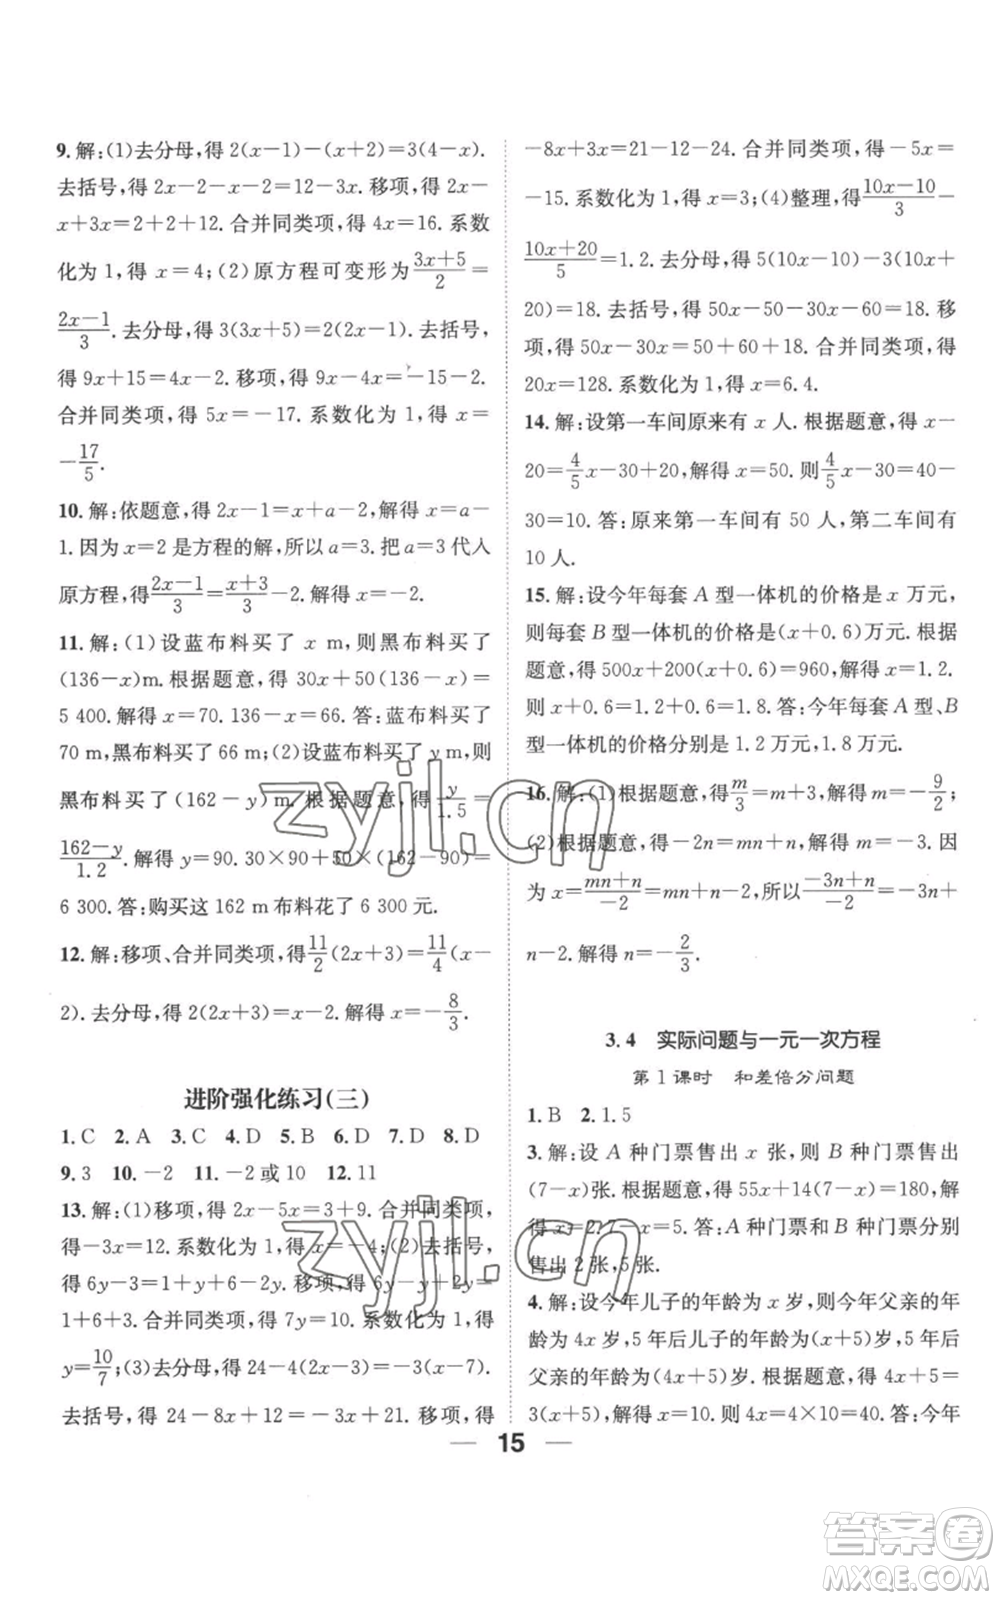 9. 解:(1)去分母,得 2(x－1)－(x＋2)＝3(4－x).
去括号,得 2x－2－x－2＝12－3x. 移项,得 2x－
x＋3x＝2＋2＋12. 合并同类项,得 4x＝16. 系数
化为 1,得 x＝4;(2)原方程可变形为 (3x＋5)/2 ＝
(2x－1)/3. 去分母,得 3(3x＋5)＝2(2x－1). 去括号,
得 9x＋15＝4x－2. 移项,得 9x－4x＝－15－2.
合并同类项,得 5x＝－17. 系数化为 1,得 x＝
－17/5.
10. 解:依题意,得 2x－1＝x＋a－2,解得 x＝a－
1. 因为 x＝2 是方程的解,所以 a＝3. 把 a＝3 代入
原方程,得 (2x－1)/3＝(x＋3)/3－2. 解得 x＝－2.
11. 解:(1)设蓝布料买了 x m,则黑布料买了
(136－x)m. 根据题意,得 30x＋50(136－x)＝
5 400. 解得 x＝70. 136－x＝66. 答:蓝布料买了
70 m,黑布料买了 66 m;(2)设蓝布料买了 y m,则
黑布料买了(162－y)m. 根据题意,得 y/1.5＝
(162－y)/1.2. 解得 y＝90. 30×90＋50×(162－90)＝
6 300. 答:购买这 162 m 布料花了 6 300 元.
12. 解:移项、合并同类项,得 11/2(2x＋3)＝11/4(x－
2). 去分母,得 2(2x＋3)＝x－2. 解得 x＝－8/3.
进阶强化练习(三)
1. C 2. A 3. C 4. D 5. B 6. D 7. D 8. D
9. 3 10. －2 11. －2 或 10 12. 11
13. 解:(1)移项,得 2x－5x＝3＋9. 合并同类项,
得－3x＝12. 系数化为 1,得 x＝－4;(2)去括号,
得 6y－3＝1＋y＋6－2y. 移项,得 6y－y＋2y＝
1＋6＋3. 合并同类项,得 7y＝10. 系数化为 1,得
y＝10/7;(3)去分母,得 24－4(2x－3)＝－3(x－7).
去括号,得 24－8x＋12＝－3x＋21. 移项,得
－8x＋3x＝21－12－24. 合并同类项,得－5x＝
－15. 系数化为 1,得 x＝3;(4)整理,得 (10x－10)/3－
(10x＋20)/5＝1.2. 去分母,得 5(10x－10)－3(10x＋
20)＝18. 去括号,得 50x－50－30x－60＝18. 移
项,得 50x－30x＝50＋60＋18. 合并同类项,得
20x＝128. 系数化为 1,得 x＝6.4.
14. 解:设第一车间原来有 x 人. 根据题意,得 x－
20＝4/5x－30＋20,解得 x＝50. 则 4/5x－30＝40－
30＝10. 答:原来第一车间有 50 人,第二车间有
10 人.
15. 解:设今年每套 A 型一体机的价格是 x 万元,
则每套 B 型一体机的价格是(x＋0.6)万元. 根据
题意,得 500x＋200(x＋0.6)＝960,解得 x＝1.2.
则 x＋0.6＝1.2＋0.6＝1.8. 答:今年每套 A 型、B
型一体机的价格分别是 1.2 万元,1.8 万元.
16. 解:(1)根据题意,得 m/3＝m＋3,解得 m＝－9/2;
(2)根据题意,得－2n＝mn＋n,解得 m＝－3. 因
为 x＝(mn＋n)/－2＝mn＋n－2,所以 (－3n＋n)/－2＝－3n＋
n－2. 解得 n＝－2/3.
3.4 实际问题与一元一次方程
第 1 课时 和差倍分问题
1. B 2. 1.5
3. 解:设 A 种门票售出 x 张,则 B 种门票售出
(7－x)张. 根据题意,得 55x＋14(7－x)＝180,解
得 x＝2. 7－x＝5. 答:A 种门票和 B 种门票分别
售出 2 张,5 张.
4. 解:设今年儿子的年龄为 x 岁,则今年父亲的年
龄为 4x 岁,5 年后儿子的年龄为(x＋5)岁,5 年
后父亲的年龄为(4x＋5)岁. 根据题意,得 4x＋5＝
3(x＋5),解得 x＝10. 则 4x＝4×10＝40. 答:今年
15
zyjl.cn
zyjl.cn
答案圈
MXQE.COM